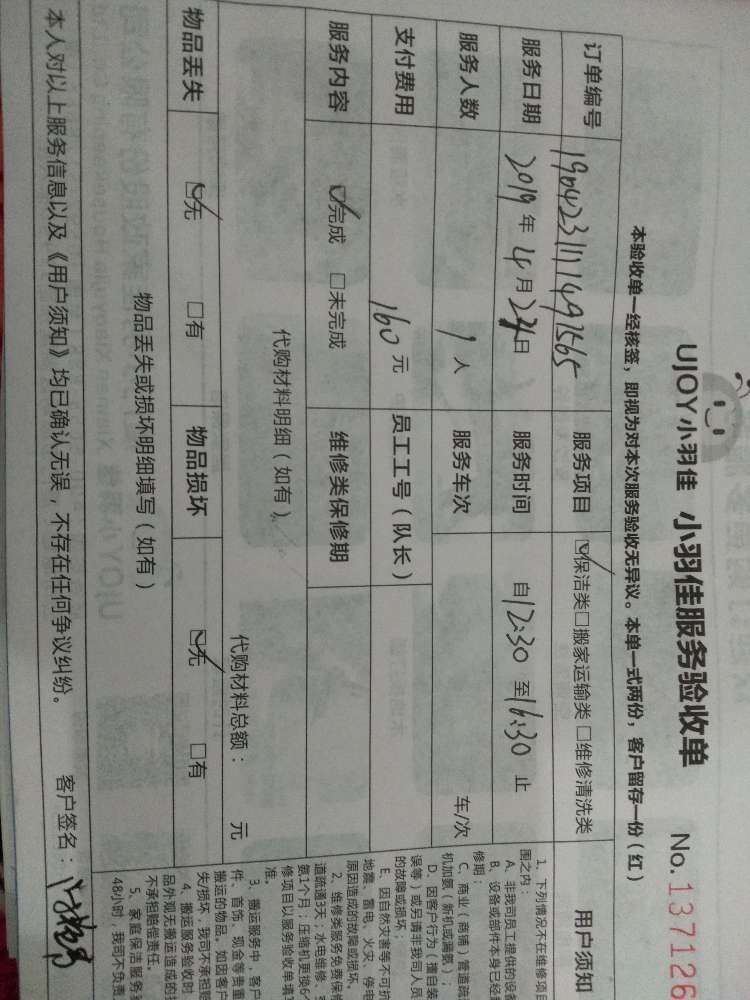 UJOY小羽佳 小羽佳服务验收单 No.137126
本验收单一经核签，即视为对本次服务验收无异议。本单一式两份，客户留存一份（红）
订单编号 1904231114971565 服务项目 ☑保洁类□搬家运输类□维修清洗类 用户须知
服务日期 2019年4月24日 服务时间 自12:30至16:30止
服务人数 1人 服务车次 车/次
支付费用 160元 员工工号（队长）
服务内容 ☑完成 □未完成 维修类保修期
代购材料明细（如有）
代购材料总额： 元
物品丢失 ☑无 □有 物品损坏 ☑无 □有
物品丢失或损坏明细填写（如有）
本人对以上服务信息以及《用户须知》均已确认无误，不存在任何争议纠纷。 客户签名：
1、下列情况不在维修项目
围之内：
A、非我司员工提供的设备
B、设备或部件本身已经
修期；
C、商业（商铺）管道疏
机加氨（新机或漏氨）；
D、因客户行为（擅自装
误等）或另请非我司人员
的故障或损坏；
E、因自然灾害等不可抗
地震、雷电、火灾、停电
原因造成的故障或损坏。
2、维修类服务免费保修
道疏通3天；水电维修、空
氨1个月；压缩机更换6个
修项目以服务验收单填写
准。
3、搬运服务中，客户
件、首饰、现金等贵重
搬运的物品。如因客户
失/损坏，我司不承担赔
4、搬运服务验收时
品外观无搬运造成的损
不承担赔偿责任。
5、家庭保洁服务验
48小时，我司不负责